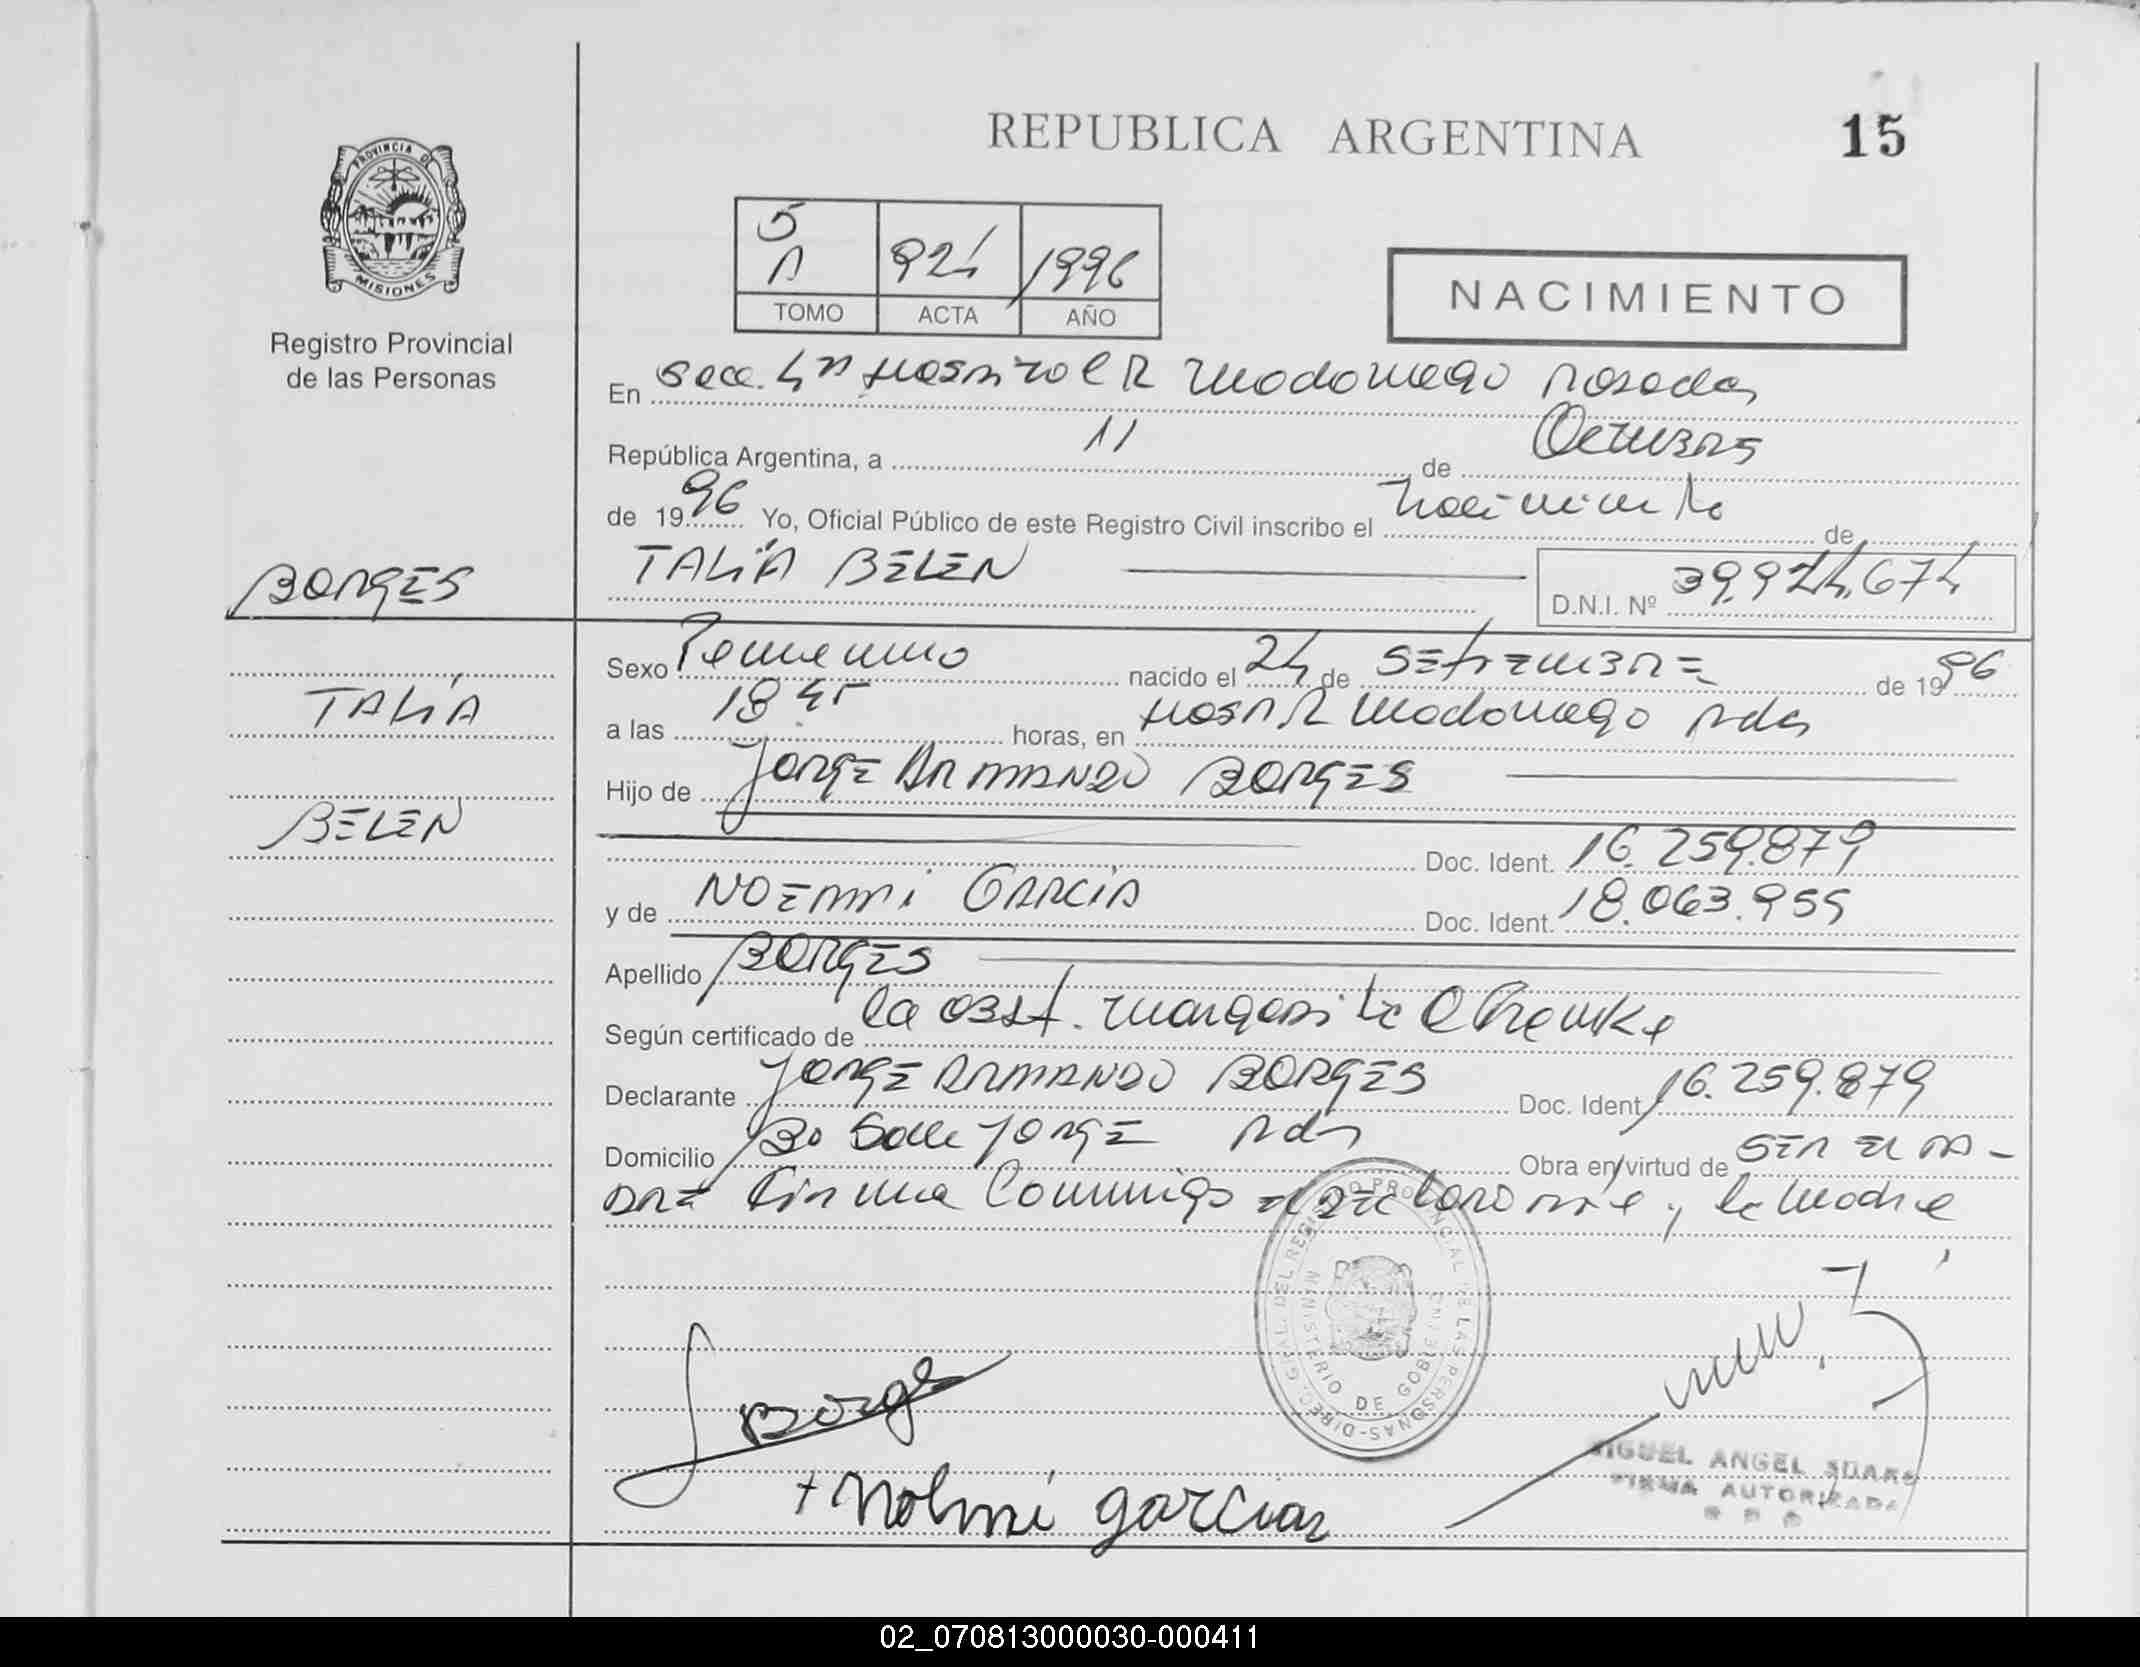 REPUBLICA ARGENTINA
15
PROVINCIA DE
MISIONES
Registro Provincial
de las Personas
5
A
924
1996
TOMO
ACTA
AÑO
NACIMIENTO
En Secc. 4ta Hospital R Madariaga Posadas
República Argentina, a 11 de Octubre
de 1996 Yo, Oficial Público de este Registro Civil inscribo el Nacimiento de
TALÍA BELEN
D.N.I. Nº 39.924.674
BORGES
TALÍA
BELEN
Sexo Femenino nacido el 24 de Setiembre de 1996
a las 18 45 horas, en Hosp R Madariaga Pdas
Hijo de Jorge Armando Borges
Doc. Ident. 16.259.879
y de NOEMI GARCIA Doc. Ident. 18.063.955
Apellido BORGES
Según certificado de la Obst. Margarita
Declarante Jorge Armando Borges Doc. Ident. 16.259.879
Domicilio Bo San Jorge Pdas Obra en virtud de ser el pa-
dre firma conmigo el declarante y la madre
DIREC. GRAL. DEL REGISTRO PROVINCIAL DE LAS PERSONAS
MINISTERIO DE GOBIERNO
Borges
+ Nohmi garcia
MIGUEL ANGEL
FIRMA AUTORIZADA
02_070813000030-000411